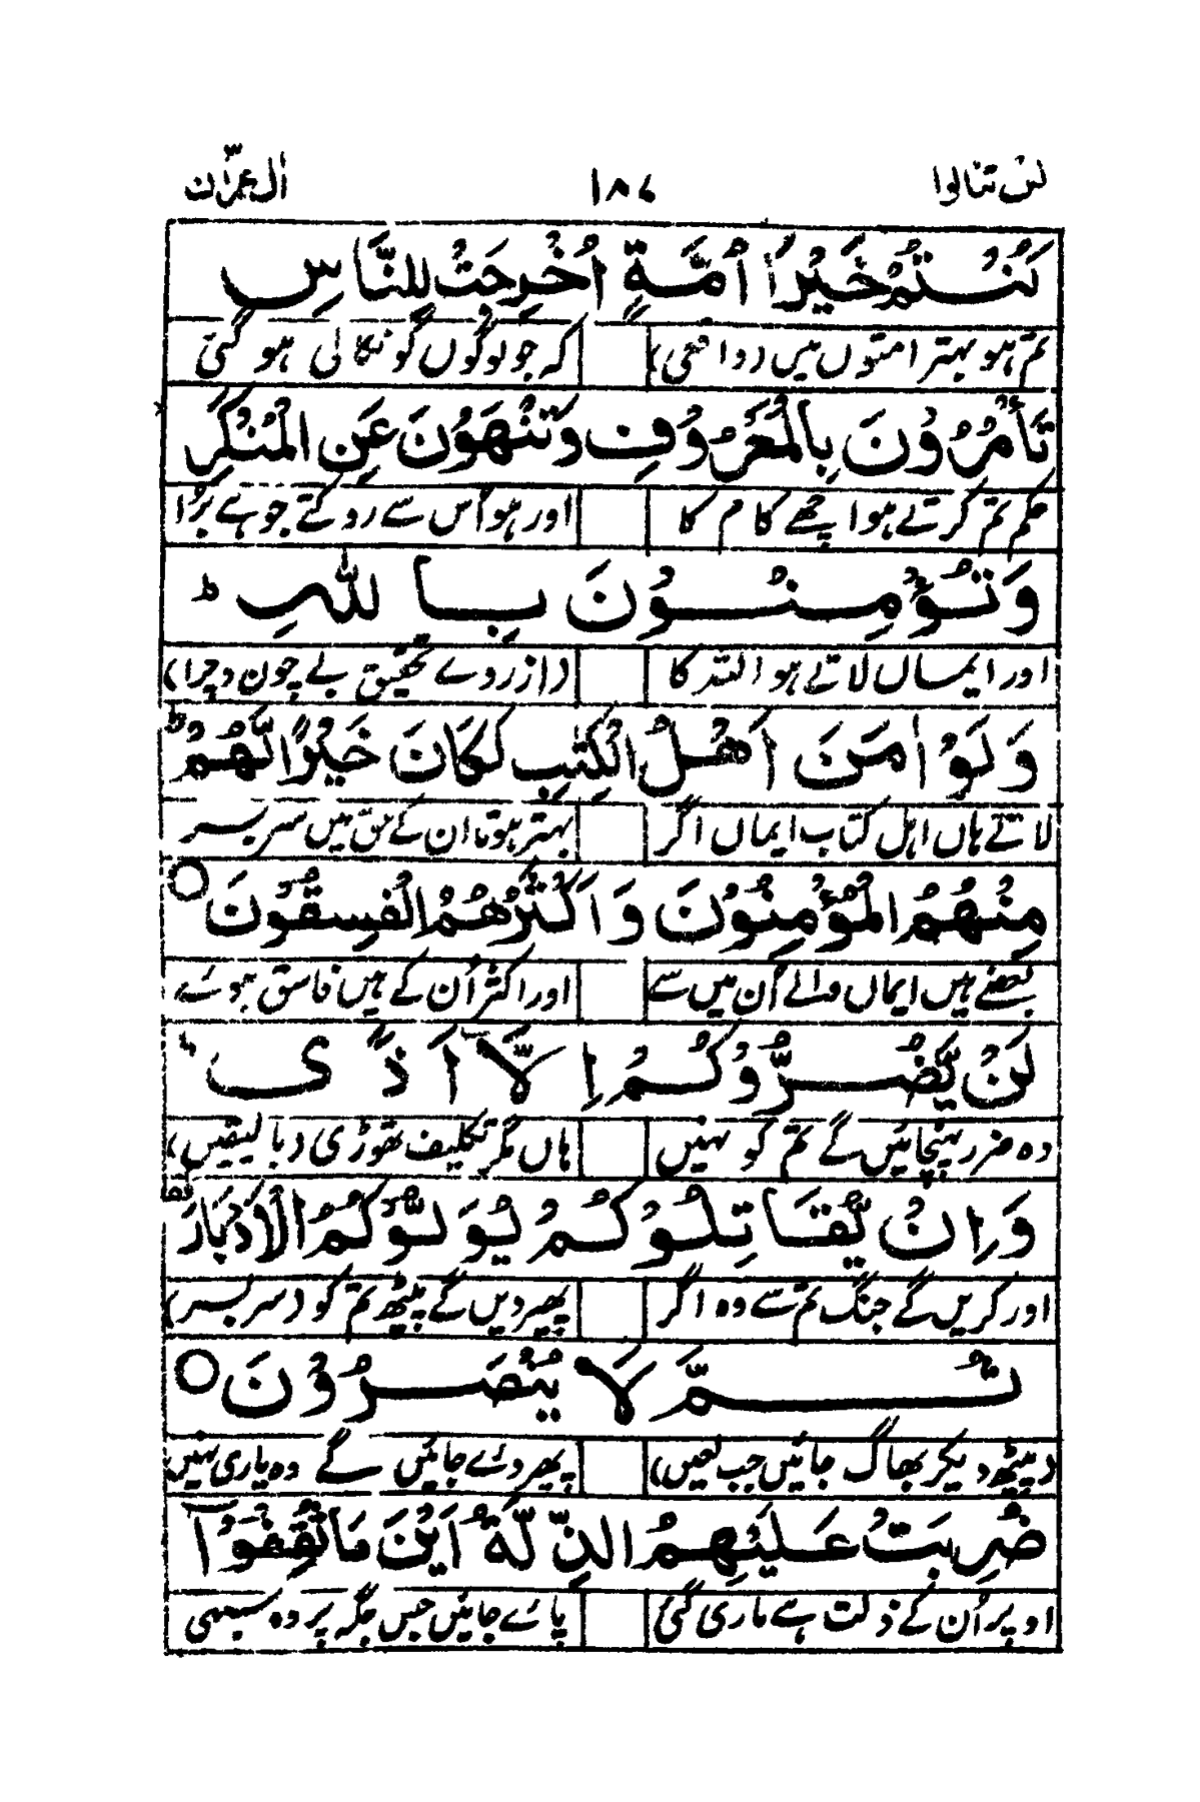 لن تنالوا ١٨٧ اٰل عمرٰن ٣
كُنْتُمْ خَيْرَ اُمَّةٍ اُخْرِجَتْ لِلنَّاسِ
تم ہو بہتر امتوں میں (واقعی) کہ جو لوگوں کو نکالی ہو گئی
تَأْمُرُوْنَ بِالْمَعْرُوْفِ وَتَنْهَوْنَ عَنِ الْمُنْكَرِ
حکم تم کرتے ہو اچھے کام کا اور ہو اُس سے روکتے جو ہے بُرا
وَتُؤْمِنُوْنَ بِاللّٰهِ ؕ
اور ایمان لاتے ہو اللہ کا (از روے تحقیق بے چون و چرا)
وَلَوْ اٰمَنَ اَهْلُ الْكِتٰبِ لَكَانَ خَيْرًا لَّهُمْ ؕ
لاتے ہاں اہل کتاب ایماں اگر بہتر ہوتا ان کے حق میں سر بسر
مِنْهُمُ الْمُؤْمِنُوْنَ وَاَكْثَرُهُمُ الْفٰسِقُوْنَ ○
بعضے ہیں ایماں والے اُن میں سے اور اکثر اُن کے ہیں فاسق ہوے
لَنْ يَّضُرُّوْكُمْ اِلَّآ اَذًى ؕ
وہ ضرر پہنچائیں گے تم کو نہیں ہاں مگر تکلیف تھوڑی (بالیقیں)
وَاِنْ يُّقَاتِلُوْكُمْ يُوَلُّوْكُمُ الْاَدْبَارَ
اور کریں گے جنگ تم سے وہ اگر پھیر دیں گے پیٹھ تم کو (سر بسر)
ثُمَّ لَا يُنْصَرُوْنَ ○
(پیٹھ دیکر بھاگ جائیں جب لعیں) پھر دئے جائیں گے وہ یاری نہیں
ضُرِبَتْ عَلَيْهِمُ الذِّلَّةُ اَيْنَ مَا ثُقِفُوْٓا
اوپر اُن کے ذلت ہے ماری گئی پائے جائیں جس جگہ پر وہ سبھی